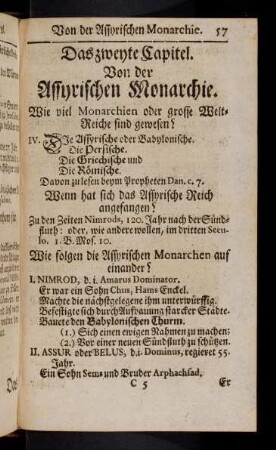 Von der Assyrischen Monarchie. 57
Das zweyte Capitel.
Von der
Assyrischen Monarchie.
Wie viel Monarchien oder grosse Welt-
Reiche sind gewesen?
IV. DIe Assyrische oder Babylonische.
Die Persische.
Die Griechische und
Die Römische.
Davon zu lesen beym Propheten Dan. c. 7.
Wenn hat sich das Assyrische Reich
angefangen?
Zu den Zeiten Nimrods, 120. Jahr nach der Sünd-
fluth: oder, wie andere wollen, im dritten Secu-
lo. 1. B. Mos. 10.
Wie folgen die Assyrischen Monarchen auf
einander?
I. NIMROD, d. i. Amarus Dominator.
Er war ein Sohn Chus, Hams Enckel.
Machte die nächstgelegene ihm unterwürffig.
Befestigte sich durch Aufbauung starcker Städte.
Bauete den Babylonischen Thurm.
(1.) Sich einen ewigen Nahmen zu machen;
(2.) Vor einer neuen Sündfluth zu schützen.
II. ASSUR oder BELUS, d.i. Dominus, regieret 55.
Jahr.
Ein Sohn Sems und Bruder Arphachsad,
C 5 Er